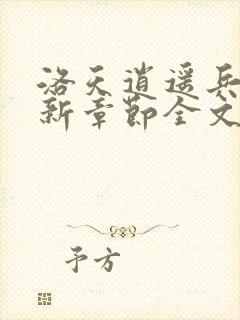 洛天逍遥兵
新章节全文
予方